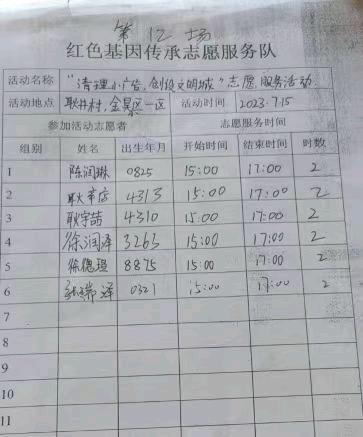 第12场
红色基因传承志愿服务队
活动名称 "清理小广告,创设文明城"志愿服务活动.
活动地点 耿井村,金昊区一区 活动时间 2023.7.15
参加活动志愿者 志愿服务时间
组别 姓名 出生年月 开始时间 结束时间 时数
1 陈润琳 0825 15:00 17:00 2
2 4313 15:00 17:00 2
3 耿宇喆 4310 15:00 17:00 2
4 徐润泽 3263 15:00 17:00 2
5 徐偲瑶 8875 15:00 17:00 2
6 张瑞泽 0321 15:00 17:00 2
7
8
9
10
11